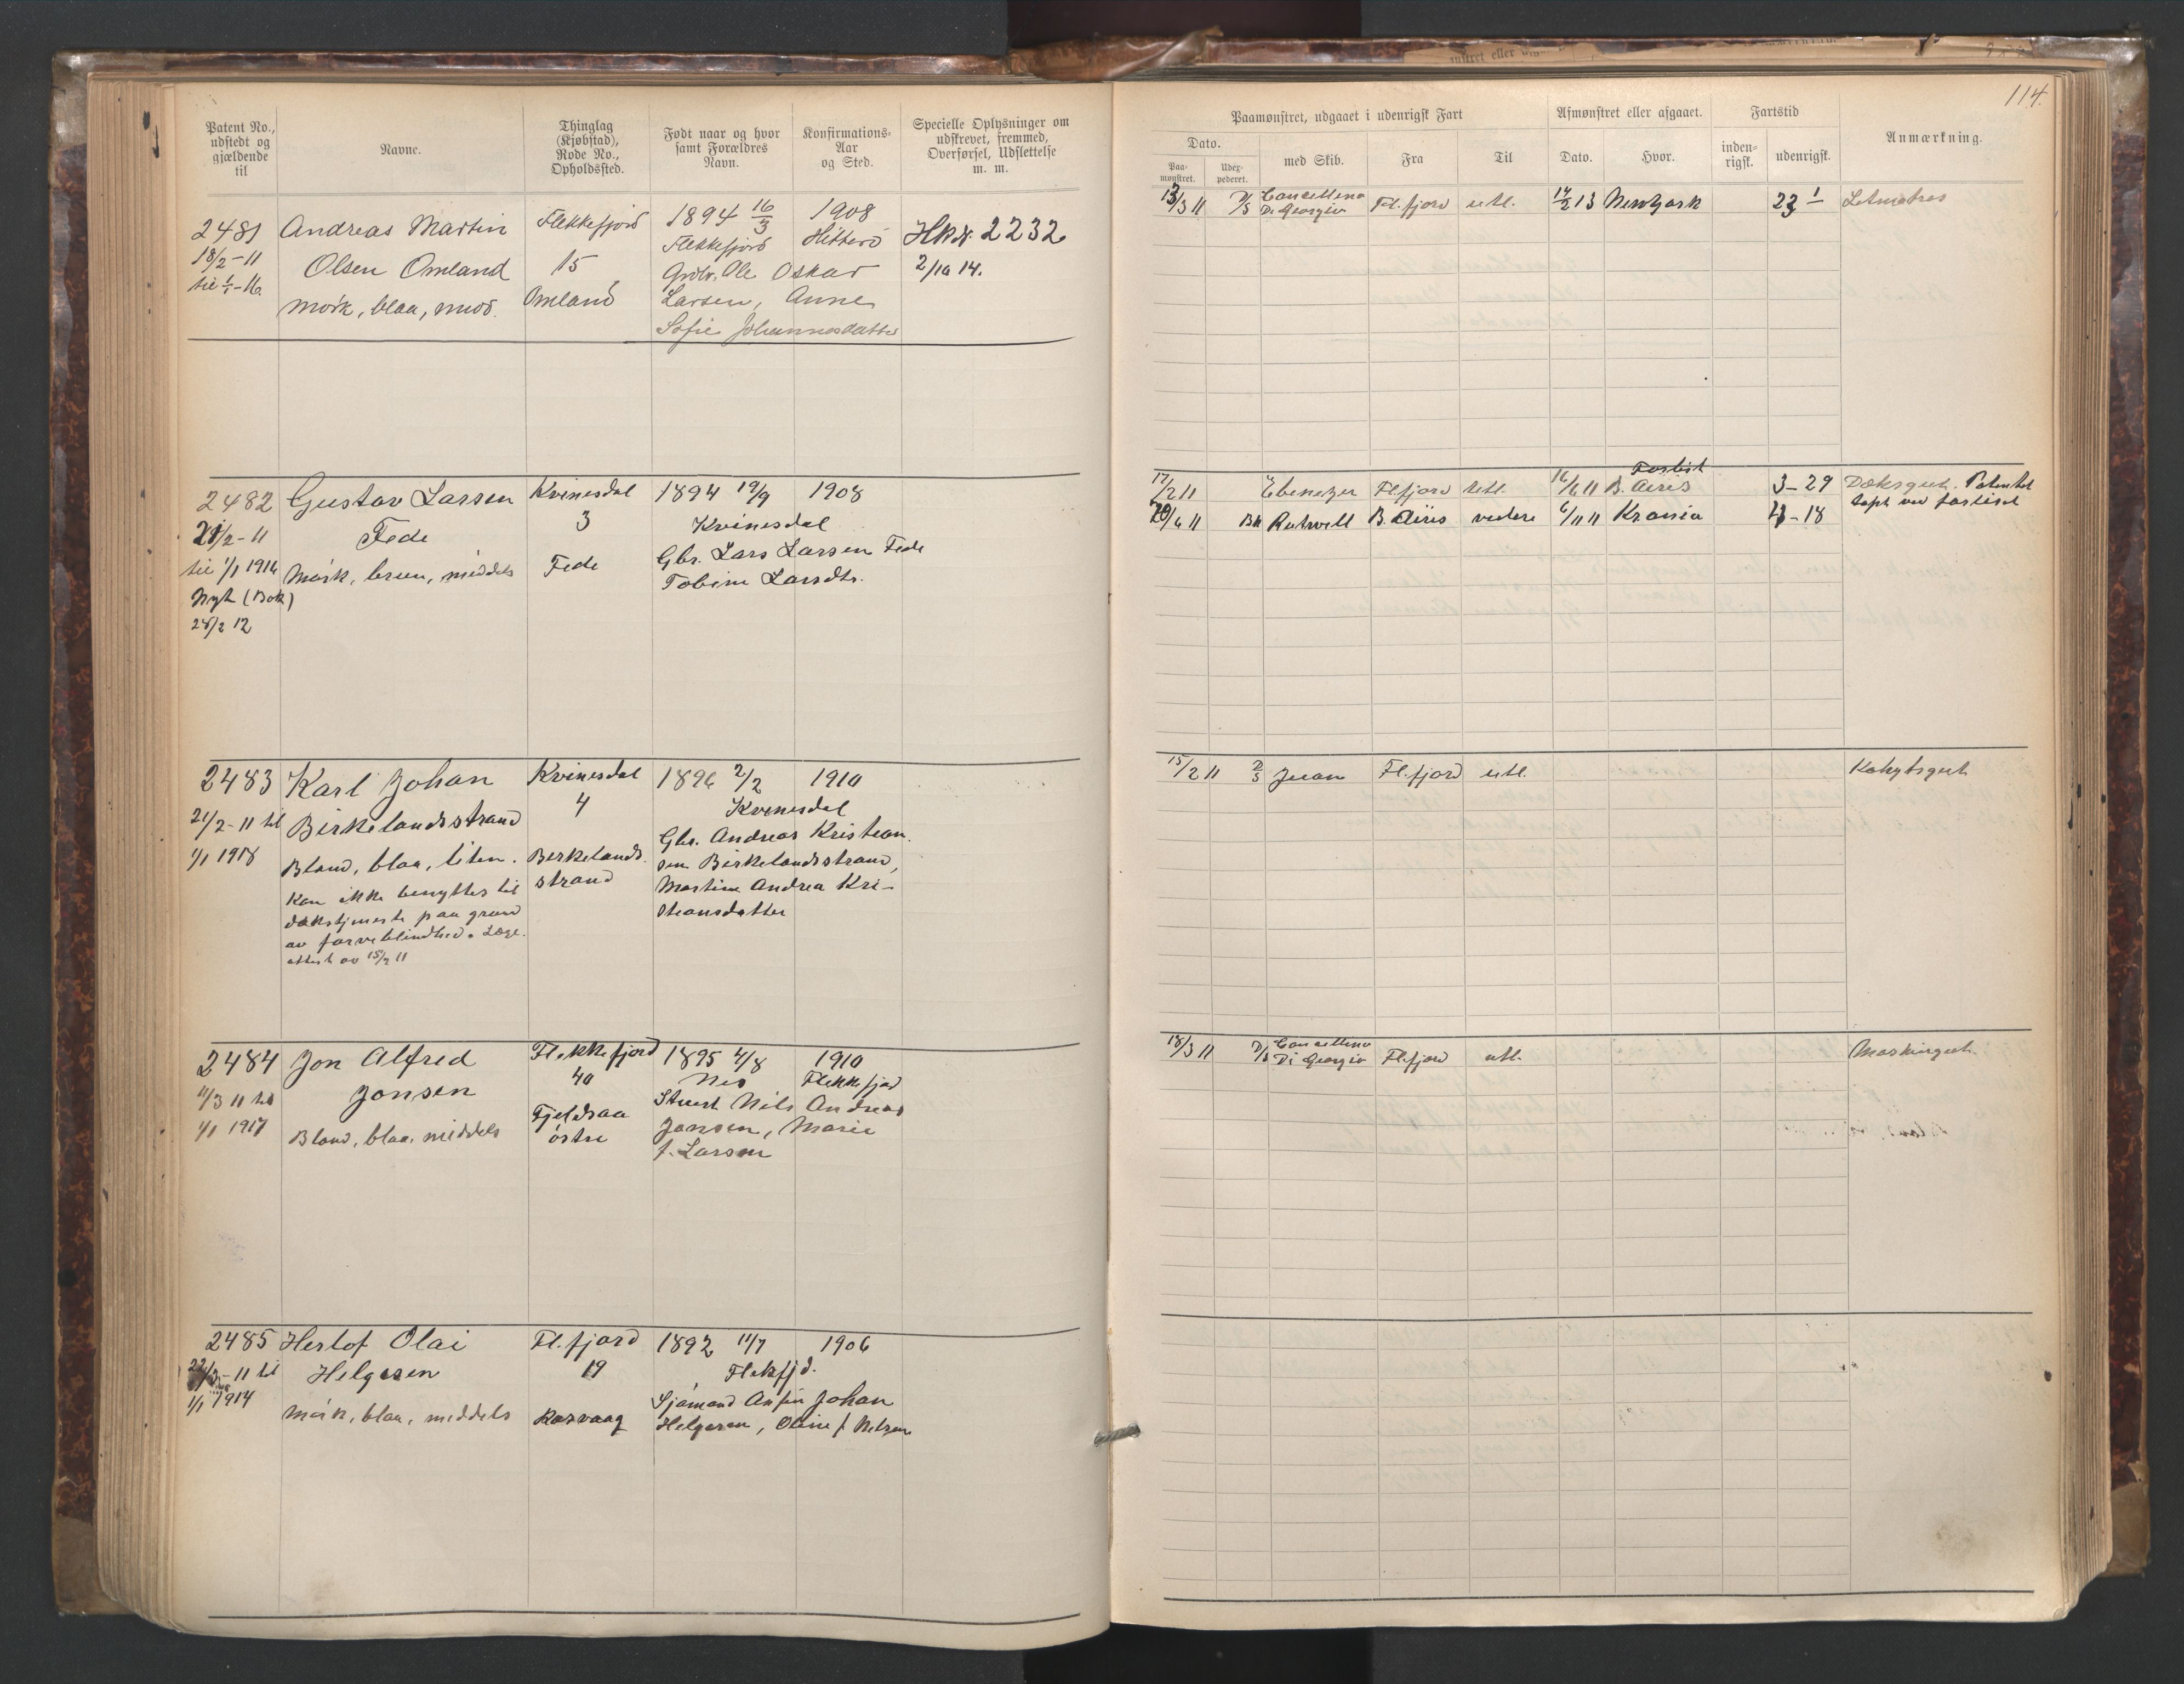 114.
Patent No., udstedt og gjældende til
Navne.
Thinglag (Kjøbstad), Rode No., Opholdssted.
Født naar og hvor samt Forældres Navn.
Konfirmations-Aar og Sted.
Specielle Oplysninger om udskrevet, fremmed, Overførsel, Udslettelse m. m.
Paamønstret, udgaaet i udenrigsk Fart
Afmønstret eller afgaaet.
Fartstid
Anmærkning.
Dato.
Paamønstret.
med Skib.
Fra
Til
Dato.
Hvor.
indenrigsk.
udenrigsk.
2481
18/2 - 11
til 1/1 - 16
Andreas Martin
Olsen Omland
Mørk, blaa, mid.
Flekkefjord
15
Omland
1894 16/3
Flekkefjord
Ole Oskar
Larsen, Anne
Sofie Johannesdatter
1908
Hitterö
2232
2/10 14.
13/3 11
Concettina
Di Georgio
Fl.fjord
utl.
14/2 13
Newyork
23 1
2482
21/2 - 11
til 1/1 1916
Nyt (Bok)
28/2 12
Gustav Larsen
Fede
Mørk, brun, middels
Kvinesdal
3
Fede
1894 19/9
1908
Kvinesdal
Gbr. Lars Larsen Fede
Tobine Larsdtr.
17/2 11
Ebenezer
Fl.fjord
utl.
16/6 11
Forlist
B. Aires
3 - 29
Dæksgut. Patentet
tapt ved forliset
20/6 11
Bk
Ruthwell
B. Aires
videre
6/11 11
Krania
4 - 18
2483
21/2 - 11 til
1/1 1918
Karl Johan
Birkelandsstrand
Blond, blaa, liten.
Kan ikke benyttes til
dækstjeneste paa grund
av farveblindhed. Læge-
attest av 15/2 11
Kvinesdal
4
Birkelands-
strand
1896 2/2
1910
Kvinesdal
Gbr. Andreas Kristian-
sen Birkelandsstrand,
Martine Andrea Kri-
stiansdatter
15/2 11
2/3
Juan
Fl.fjord
utl.
Kahytsgut
2484
11/3 11 til
1/1 1917
Jon Alfred
Jonsen
Blond, blaa, middels
Flekkefjord
40
Fjeldsaa
østre
1895 4/8
1910
Nes
Flekkefjord
Stuert Nils Andreas
Jonsen, Marie
f. Larsen
18/3 11
Concettina
Di Georgio
Fl.fjord
utl.
Maskingut.
2485
22/3 - 11 til
1/1 1914
Herlof Olai
Helgesen
Mørk, blaa, middels
Fl.fjord
19
Rasvaag
1892 11/7
1906
Flekfjd.
Sjømand Anfin Johan
Helgesen, Oline f. Nelsen